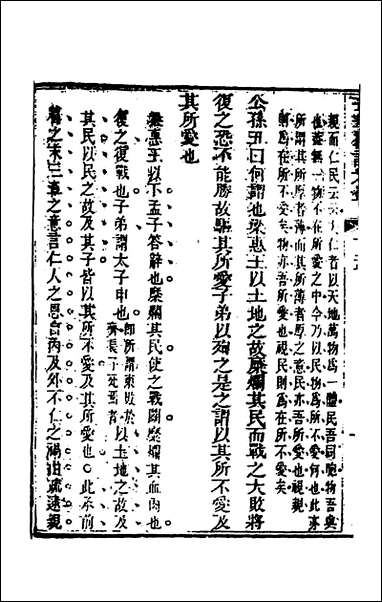 親而仁民云云仁者以天地萬物為一體民吾同胞物吾與
也蓋無一物不在所愛之中今乃以民物為所不愛何也此亦
所謂其所厚者薄而其所薄者厚之意民亦吾所愛也視親
則為在所不愛矣物亦吾所愛也視民則為在所不愛矣
公孫丑曰何謂也梁惠王以土地之故糜爛其民而戰之大敗將
復之恐不能勝故驅其所愛子弟以殉之是之謂以其所不愛及
其所愛也
梁惠王以下孟子答辭也糜爛其民使之戰鬪糜爛其血肉也
復之復戰也子弟謂太子申也
即所謂東敗於
齊長子死焉者
以土地之故及
其民以民之故及其子皆以其所不愛及其所愛也○此承前
篇之末三章之意言仁人之恩自內及外不仁之禍由疏逮親